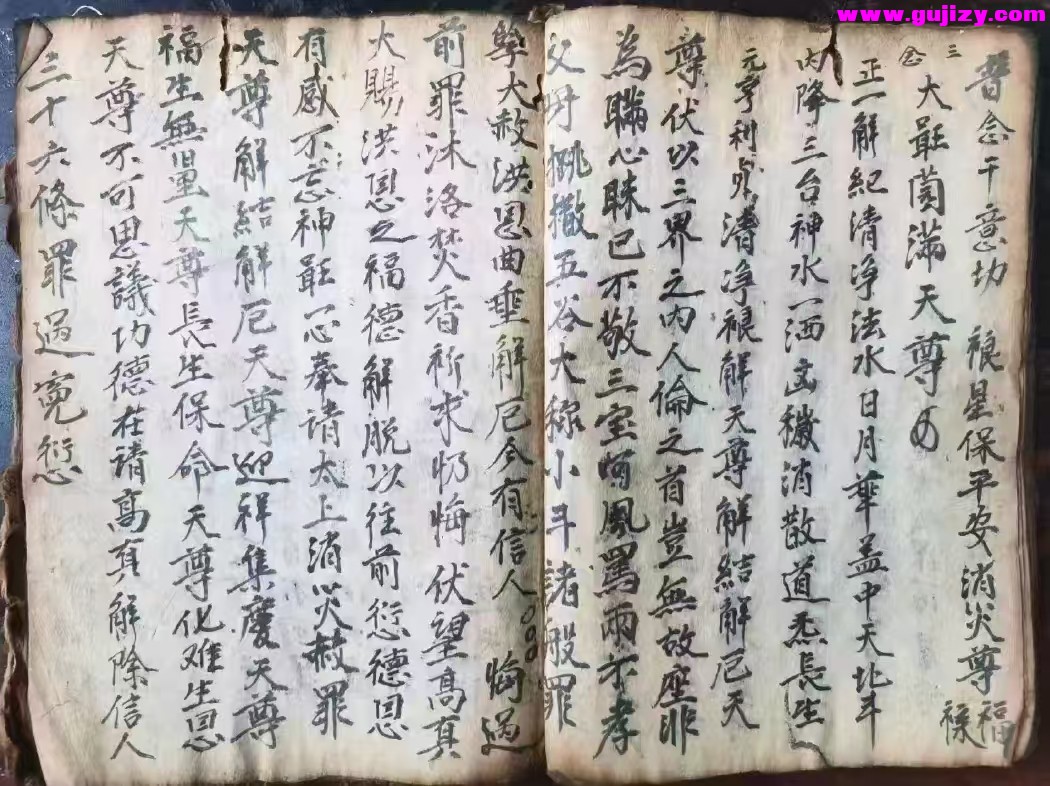 www.gujizy.com
普念千意功 禳星保平安消災尊 福祿
三念
大聖圎滿天尊
正一解紀清净法水日月華盖中天北斗
内降三台神水一洒凶穢消散道炁長生
元亨利貞清净禳解天尊解結解厄天
尊伏以三界之内人倫之首豈無故座非
為瞞心昧已不敬三宝呵風罵雨不孝
父母抛撒五谷大称小斗諸般罪
孽大赦洪恩曲垂解厄今有信人 悔過
前罪沐浴焚香祈求忏悔伏望高真
大賜洪恩之福德解脱以往前愆德恩
有感不忘神聖一心奉请太上消災赦罪
天尊解結解厄天尊迎祥集慶天尊
福生無量天尊長生保命天尊化难生恩
天尊不可思議功德在請高真解除信人
三十六條罪過寃愆